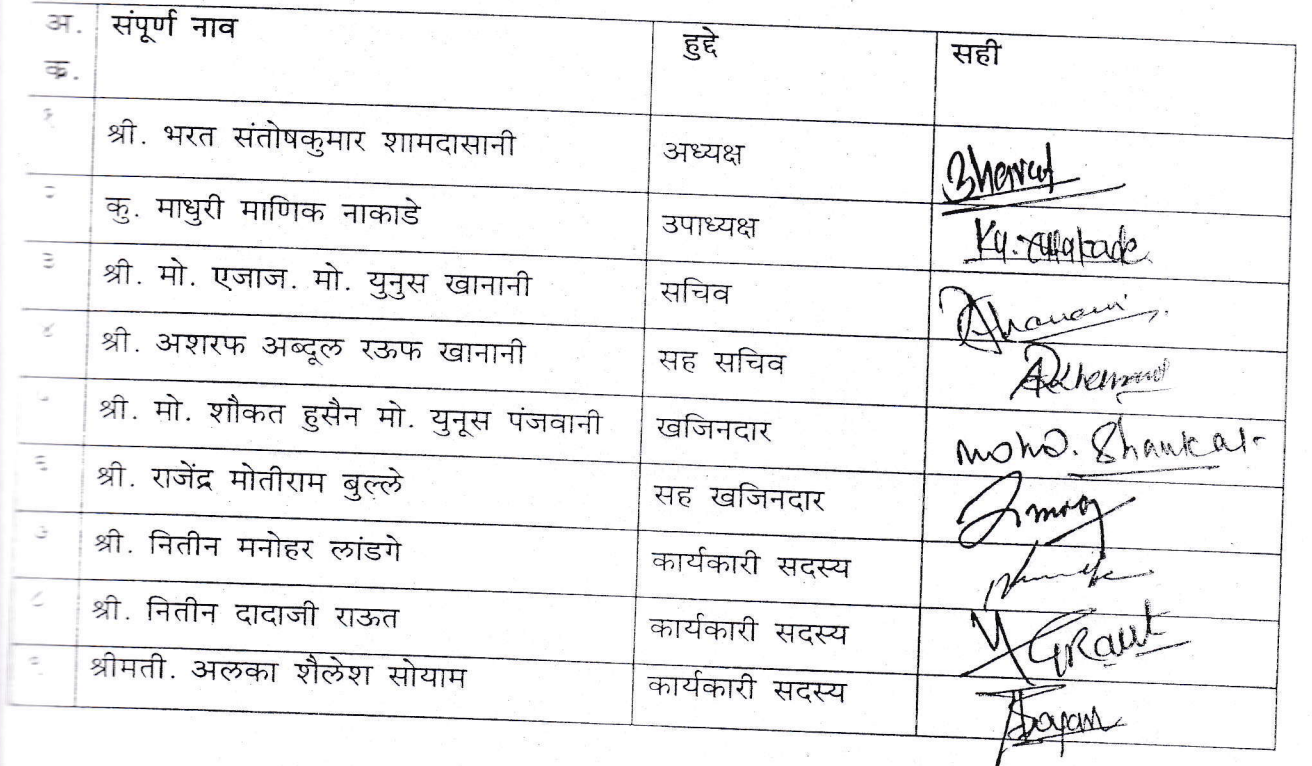 अ. संपूर्ण नाव हुद्दे सही
क्र.
श्री. भरत संतोषकुमार शामदासानी अध्यक्ष Bharat
कु. माधुरी माणिक नाकाडे उपाध्यक्ष Ku.
३ श्री. मो. एजाज. मो. युनुस खानानी सचिव
४ श्री. अशरफ अब्दूल रऊफ खानानी सह सचिव
श्री. मो. शौकत हुसैन मो. युनूस पंजवानी खजिनदार Mohd. Shaukat
६ श्री. राजेंद्र मोतीराम बुल्ले सह खजिनदार
७ श्री. नितीन मनोहर लांडगे कार्यकारी सदस्य
८ श्री. नितीन दादाजी राऊत कार्यकारी सदस्य
श्रीमती. अलका शैलेश सोयाम कार्यकारी सदस्य